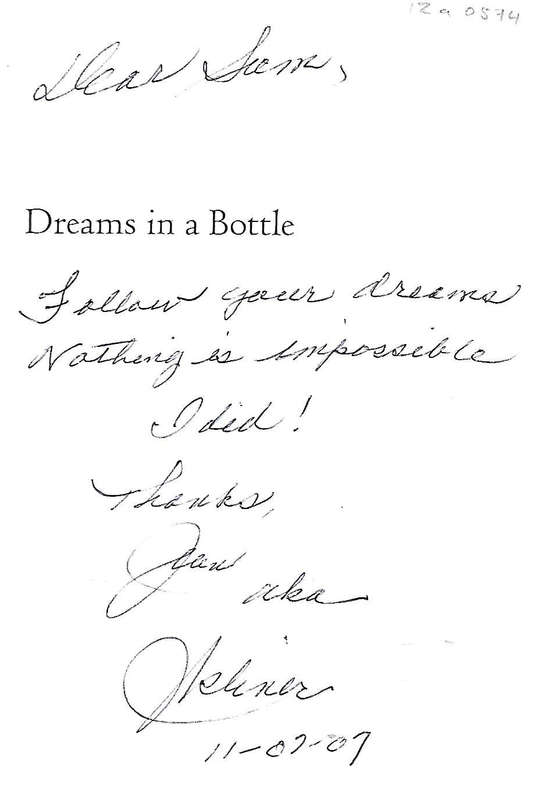 12a 0574
Dear Sam,
Dreams in a Bottle
Follow your dreams
Nothing is impossible
I did!
Thanks,
Jan
aka
JKliner
11-07-07